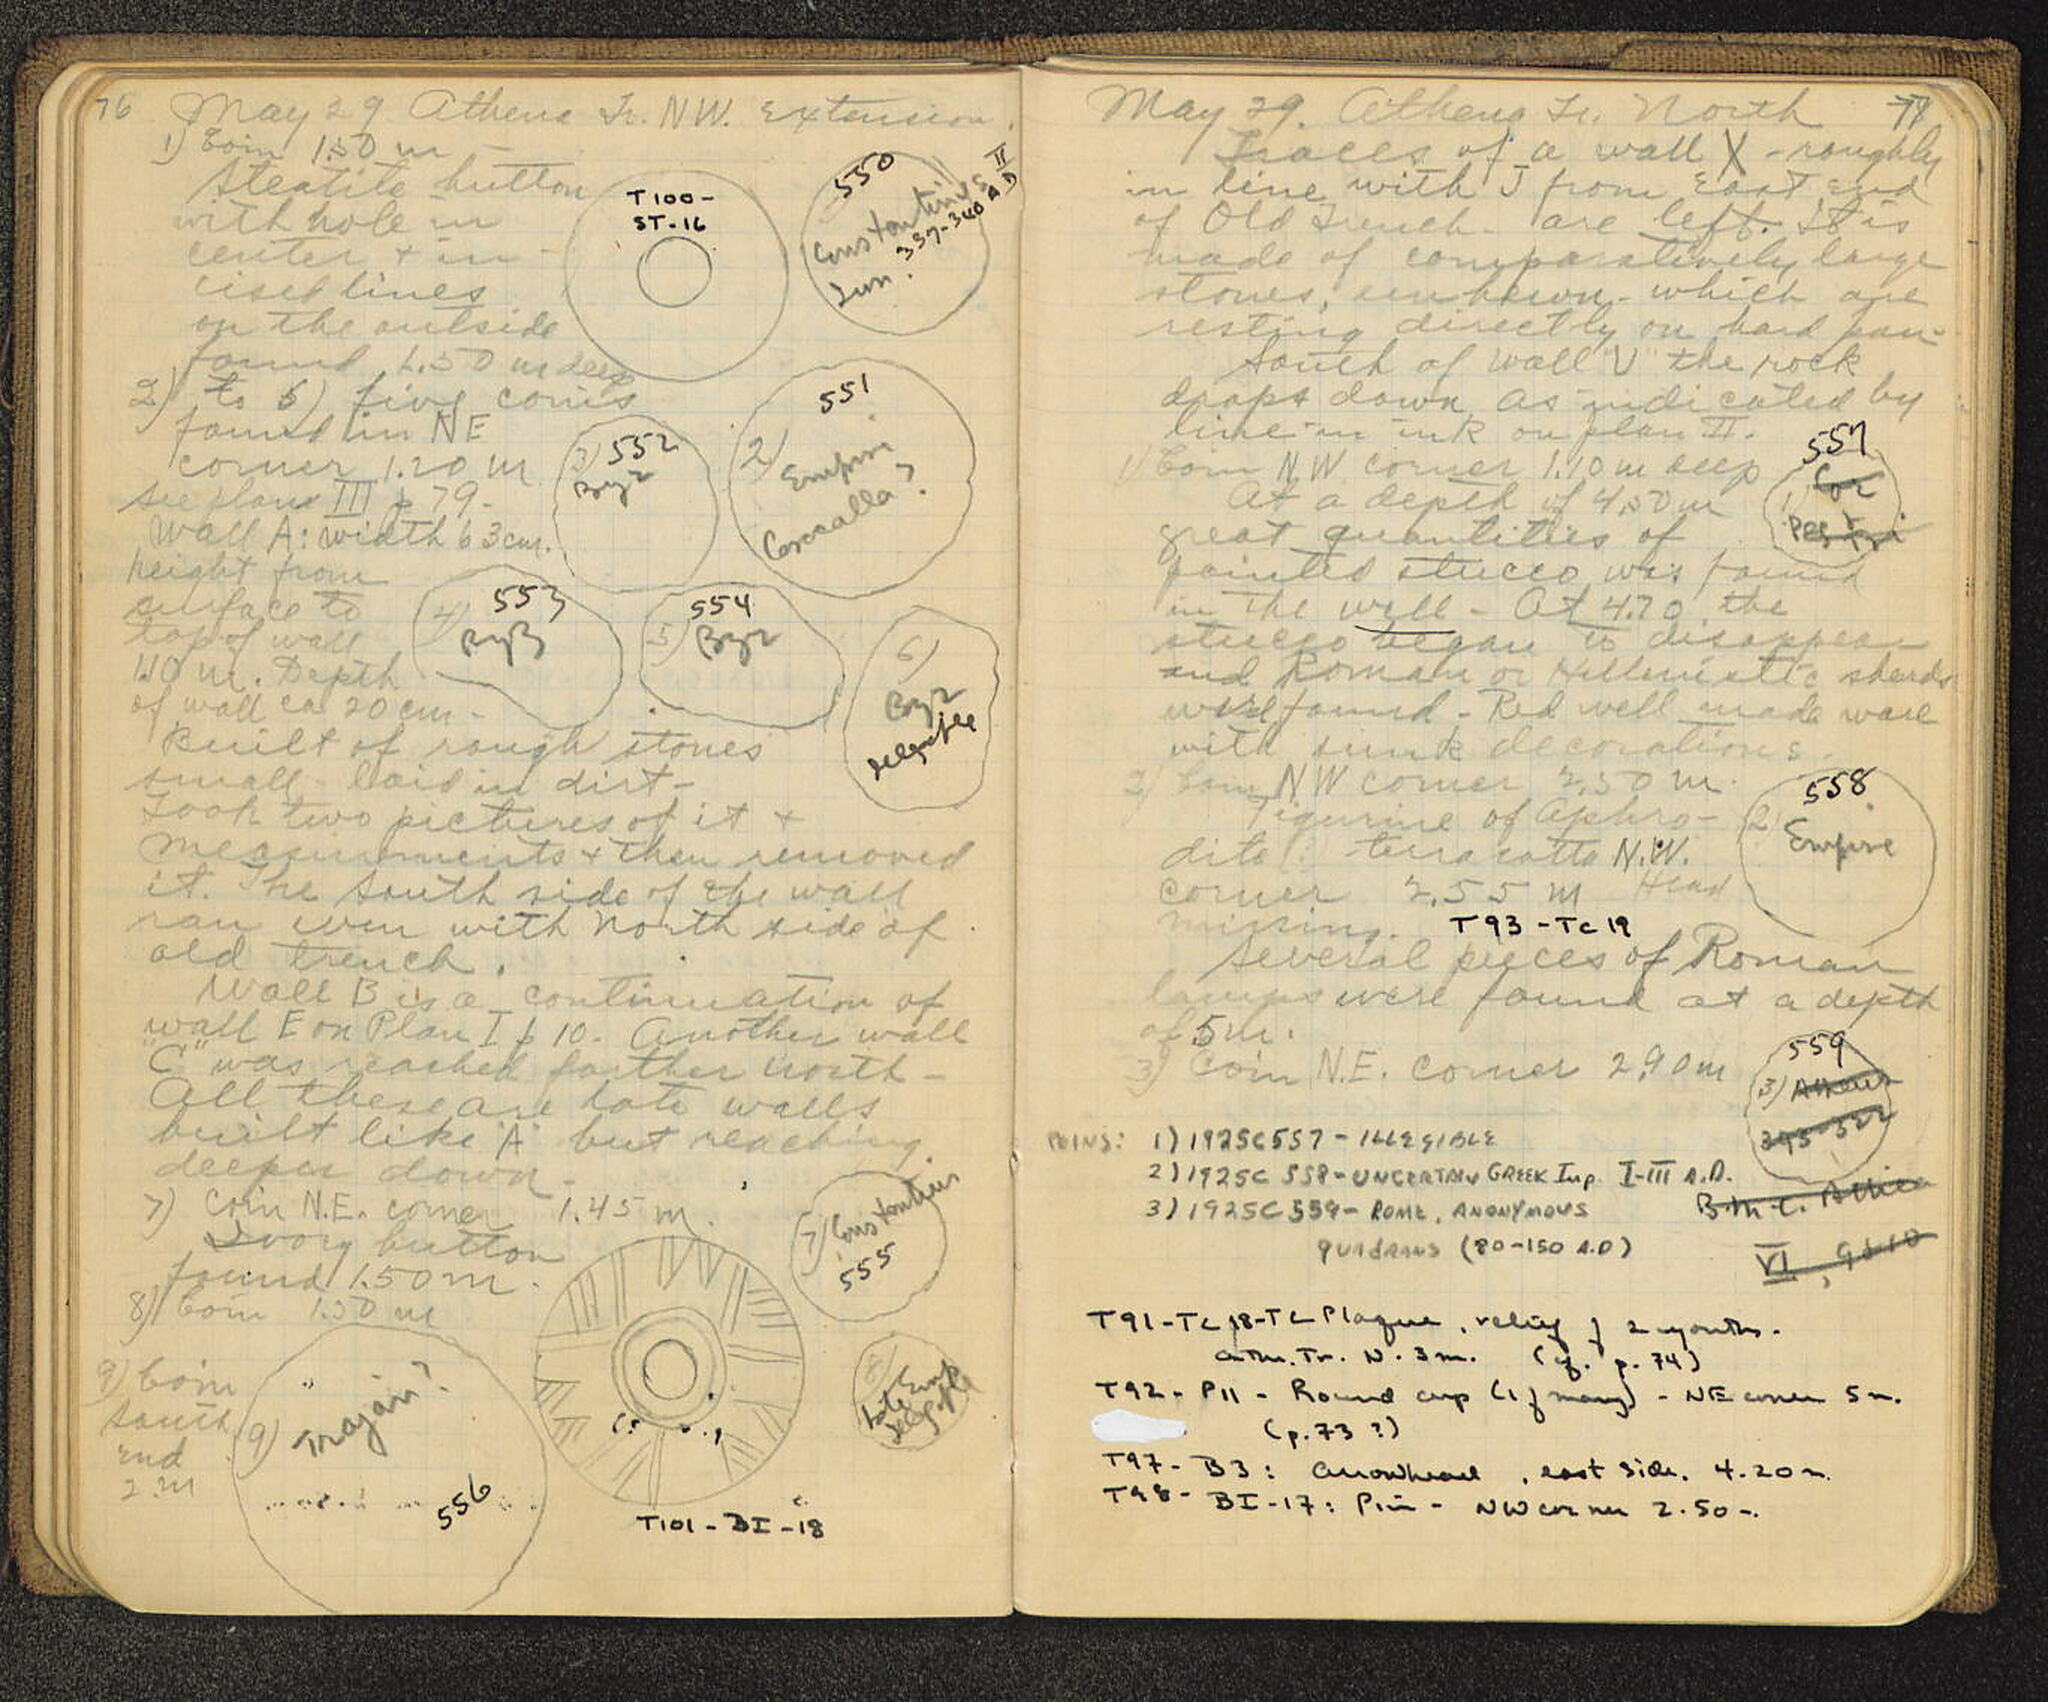 76 May 29 Athena Tr. N.W. Extension.
1) Coin 1.50 m -
Steatite button
with hole in
center + in-
cised lines
on the outside
found 1.50 m deep
T100-
ST-16
550
Constantinus II
Jun. 337-340 A.D
2) to 6) five coins
found in NE
corner 1.20 m
see plan III p 79-
551
2) Empire
Caracalla?
3) 552
Byz
Wall A: width 63 cm.
height from
surface to
top of wall
1.10 m. Depth
of wall ca 20 cm -
4) 553
Byz
5) 554
Byz
6)
Byz
illegible
Built of rough stones
small - laid in dirt -
Took two pictures of it +
measurements + then removed
it. The South side of the wall
ran even with North side of
old trench.
Wall B is a continuation of
wall E on Plan I p 10. Another wall
"C" was reached farther north -
All these are late walls
built like "A" but reaching
deeper down -
7) Coin N.E. corner 1.45 m.
Ivory button
found 1.50 m.
8) Coin 1.50 m
7) Constantius
555
9) Coin
South
end
2 m
9) Trajan?
556
8) Late Emp
illegible
T101 - BI - 18
May 29. Athena Tr. North 77
Traces of a wall X - roughly
in line with J from East end
of Old Trench - are left. It is
made of comparatively large
stones, unhewn - which are
resting directly on hard pan -
South of wall "V" the rock
drops down as indicated by
line in ink on plan II.
1) Coin NW corner 1.10 m deep
557
1) Cor
Peg +
At a depth of 4.50 m
great quantities of
painted stucco was found
in the well - At 4.70 the
stucco began to disappear
and Roman or Hellenistic sherds
were found - Red well made ware
with sunk decorations.
2) Coin NW corner 2.50 m.
558
2) Empire
Figurine of Aphro-
dite: terracotta N.W.
corner 2.55 m Head
missing. T93 - TC 19
Several pieces of Roman
lamps were found at a depth
of 5 m.
3) Coin N.E. corner 2.90 m
559
3) Athens
COINS: 1) 1925C557 - ILLEGIBLE
2) 1925C 558 - UNCERTAIN GREEK Imp. I-III A.D.
3) 1925C559 - ROME, ANONYMOUS
QUADRANS (80-150 A.D)
B.M.C. Attica
VI,
T91 - TC 18 - TC Plaque, relief of 2 youths -
Ath. Tr. N. 3 m. (cf. p. 74)
T92 - P11 - Round cup (1 of many) - NE corner 5 m.
(p. 73 ?)
T97 - B3: arrowhead, east side. 4.20 m.
T98 - BI-17: Pin - NW corner 2.50 -.